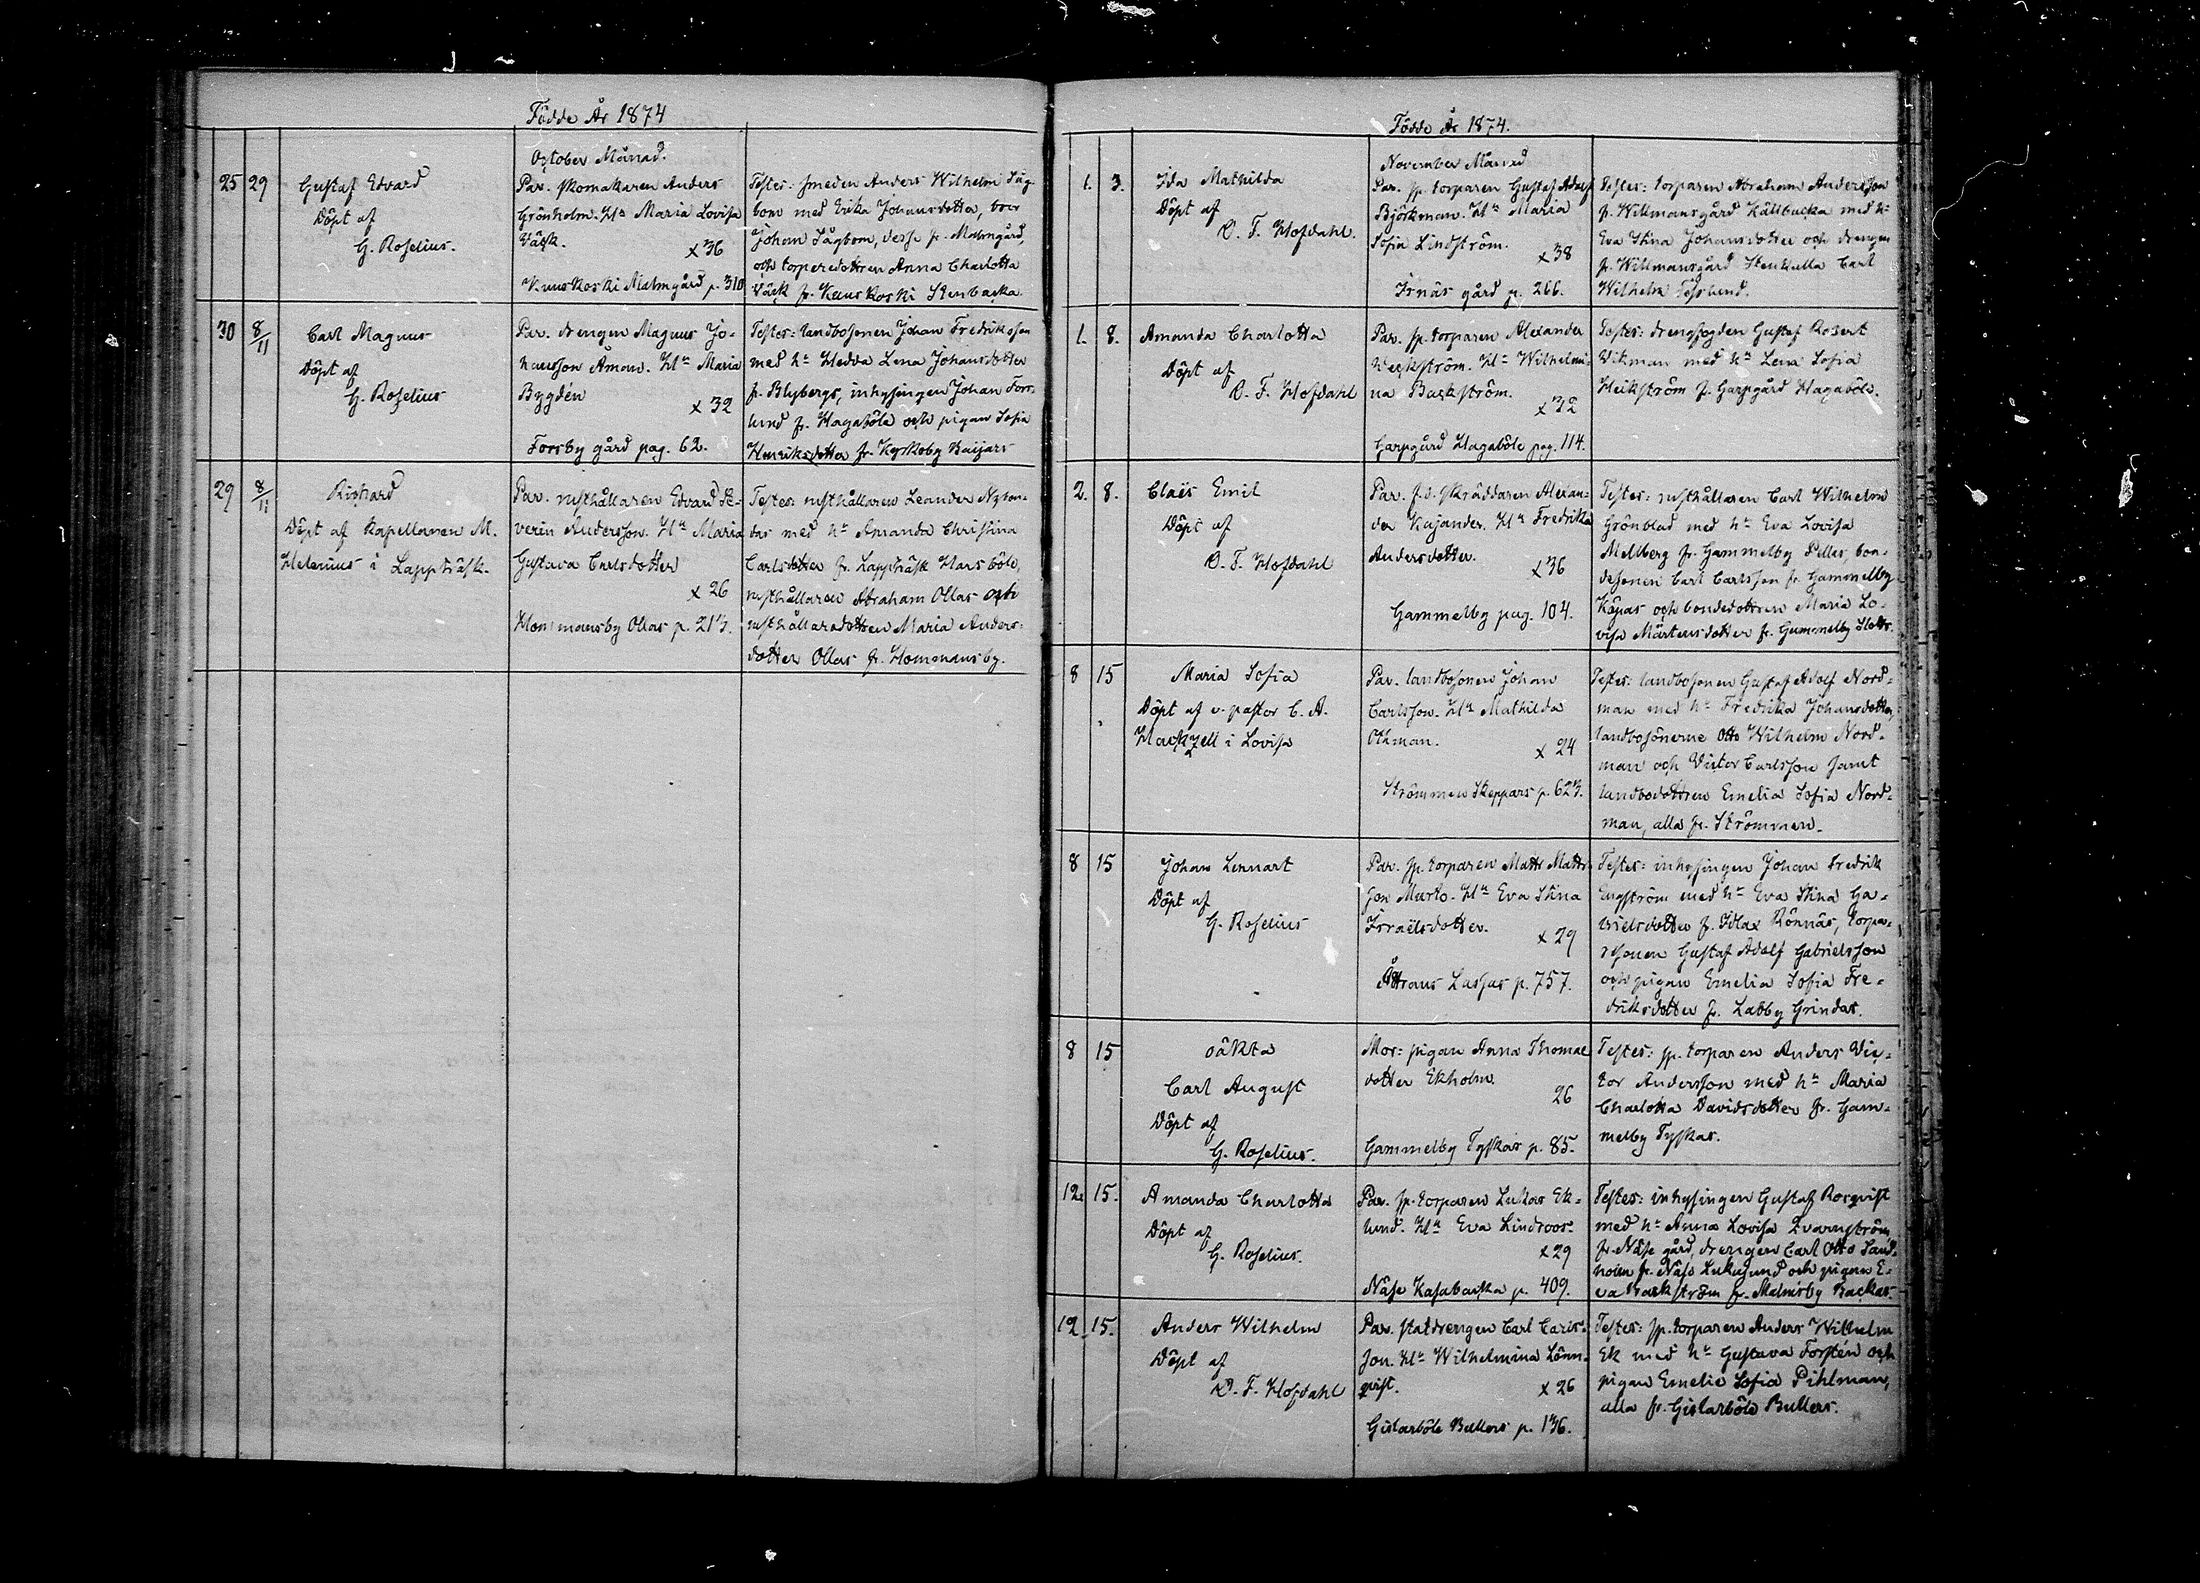 Födde År 1874
October Månad.
25 29 Gustaf Edvard
Döpt af
G. Roselius.
Par. skomakaren Anders
Grönholm. H:u Maria Lovisa
Väck.
x 36
Kuuskoski Malmgård p. 310
Testes: smeden Anders Wilhelm Såg-
bom med Erika Johansdotter, bror
Johan Sågbom, desse fr. Malmgård,
och torparedottren Anna Charlotta
Väck fr. Kuuskoski Stenbacka
30 8/11 Carl Magnus
Döpt af
G. Roselius
Par. drengen Magnus Jo-
hansson Åman. H:u Maria
Bygdén
x 32
Forsby gård pag. 62.
Testes: landbosonen Johan Fredriksson
med h:u Hedda Lena Johansdotter
fr. Blybergs, inhysingen Johan Fors-
lund fr. Hagaböle och pigan Sofia
Henriksdotter fr. Kyrkoby Baijars
29 8/11 Richard
Döpt af Kapellanen M.
Helenius i Lappträsk.
Par. rusthållaren Edvard Se-
verin Andersson. H:u Maria
Gustava Carlsdotter
x 26
Hommansby Ollas p. 213.
Testes: rusthållaren Leander
med h:u Amanda Christina
Carlsdotter fr. Lappträsk Harsböle,
rusthållaren Abraham Ollas och
rusthållaredottren Maria Anders-
dotter Ollas fr. Hommansby.
Födde År 1874.
November Månad
1. 3. Ida Mathilda
Döpt af
O. F. Hofdahl.
Par. sp. torparen Gustaf Adolf
Björkman. H:u Maria
Sofia Lindström.
x 38
Isnäs gård p. 266.
Testes: torparen Abraham Andersson
fr. Willmansgård Källbacka med h:u
Eva Stina Johansdotter och drengen
fr. Willmansgård Stenkulla Carl
Wilhelm Forslund.
1. 8. Amanda Charlotta
Döpt af
O. F. Hofdahl
Par. sp. torparen Alexander
Weckström. H:u Wilhelmi-
na Backström.
x 32
Garpgård Hagaböle pag. 114.
Testes: drengfogden Gustaf Robert
Vikman med h:u Lena Sofia
Heikström fr. Garpgård Hagaböle.
2. 8. Claës Emil
Döpt af
O. F. Hofdahl
Par. f.d. skräddaren Alexan-
der Kajander. H:u Fredrika
Andersdotter.
x 36
Gammelby pag. 104.
Testes: rusthållaren Carl Wilhelm
Grönblad med h:u Eva Lovisa
Mellberg fr. Gammelby Pellas, bon-
desonen Carl Carlsson fr. Gammelby
Köpas och bondedottren Maria Lo-
visa Mårtensdotter fr. Gammelby Slotts.
8 15 Maria Sofia
Döpt af v. pastor C. A.
Hackzell i Lovisa
Par. landbosonen Johan
Carlsson. H:u Mathilda
Öhman.
x 24
Strömmen Skeppars p. 623.
Testes: landbosonen Gustaf Adolf Nord-
man med h:u Fredrika Johansdotter,
landbosönerne Otto Wilhelm Nord-
man och Victor Carlsson samt
landbodottren Emelia Sofia Nord-
man, alla fr. Strömmen.
8 15 Johan Lennart
Döpt af
G. Roselius
Par. sp. torparen Matts Matts-
son Murto. H:u Eva Stina
Israëlsdotter.
x 29
Lassas p. 757.
Testes: inhysingen Johan Fredrik
Engström med h:u Eva Stina Ga-
brielsdotter fr. Idlax Rönnäs, torpa-
resonen Gustaf Adolf Gabrielsson
och pigan Emelia Sofia Fre-
driksdotter fr. Labby Grindas.
8 15 oäkta
Carl August
Döpt af
G. Roselius.
Mor: pigan Anna Thomae
dotter Ekholm
26
Gammelby Tyskas p. 85.
Testes: sp. torparen Anders Vic-
tor Andersson med h:u Maria
Charlotta Davidsdotter fr. Gam-
melby Tyskas.
12. 15. Amanda Charlotta
Döpt af
G. Roselius.
Par. sp. torparen Lukas Ek-
lund. H:u Eva Lindroos.
x 29
Näse Kasabacka p. 409.
Testes: inhysingen Gustaf Rosqvist
med h:u Anna Lovisa Qvarnström
fr. Näse gård, drengen Carl Otto Sand-
holm fr. Näse och pigan E-
va Backström fr. Malmsby Backas.
12 15. Anders Wilhelm
Döpt af
O. F. Hofdahl
Par. statdrengen Carl Carls-
son. H:u Wilhelmina Lönn-
qvist.
x 26
Gislarböle Bullers p. 136.
Testes: sp. torparen Anders Wilhelm
Ek med h:u Gustava Forstén och
pigan Emelie Sofia Pihlman,
alla fr. Gislarböle Bullers.